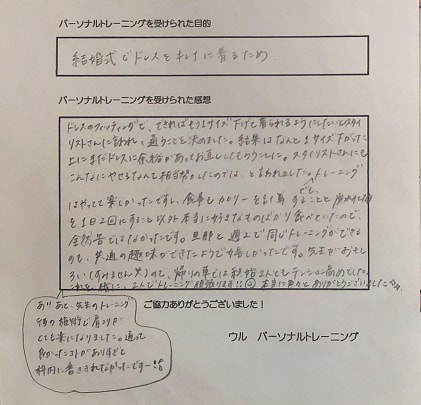 パーソナルトレーニングを受けられた目的
結婚式でドレスをキレイに着るため。
パーソナルトレーニングを受けられた感想
ドレスのフィッティングで、できればもう1サイズ下げて着られるようにしたいとスタイ
リストさんに言われ、通うことを決めました。結果はなんと1サイズ下がった
上にまだドレスに余裕があってお直ししてもらうことに。スタイリストさんにも
こんなにやせるなんて相当がんばったのでは、と言われました。トレーニング
はやってて楽しかったですし、食事もカロリーを計算すること
を1日2回にすること以外本当に好きなものばかり食べていたので、
全然苦ではなかったです。旦那と週2で同じトレーニングができる
のも、共通の趣味ができたようで嬉しかったです。先生がおもし
ろい(すみません笑)ので、帰りの車では私達2人ともテンション高めでした。
これを機に、2人でトレーニング頑張ります!! 本当にありがとうございました
あ!! あと、先生のトレーニング
後の施術で肩コリが
とても楽になりました。通って
良かったコトがありすぎて
枠内に書ききれなかったですー!!
ご協力ありがとうございました!
ウル パーソナルトレーニング